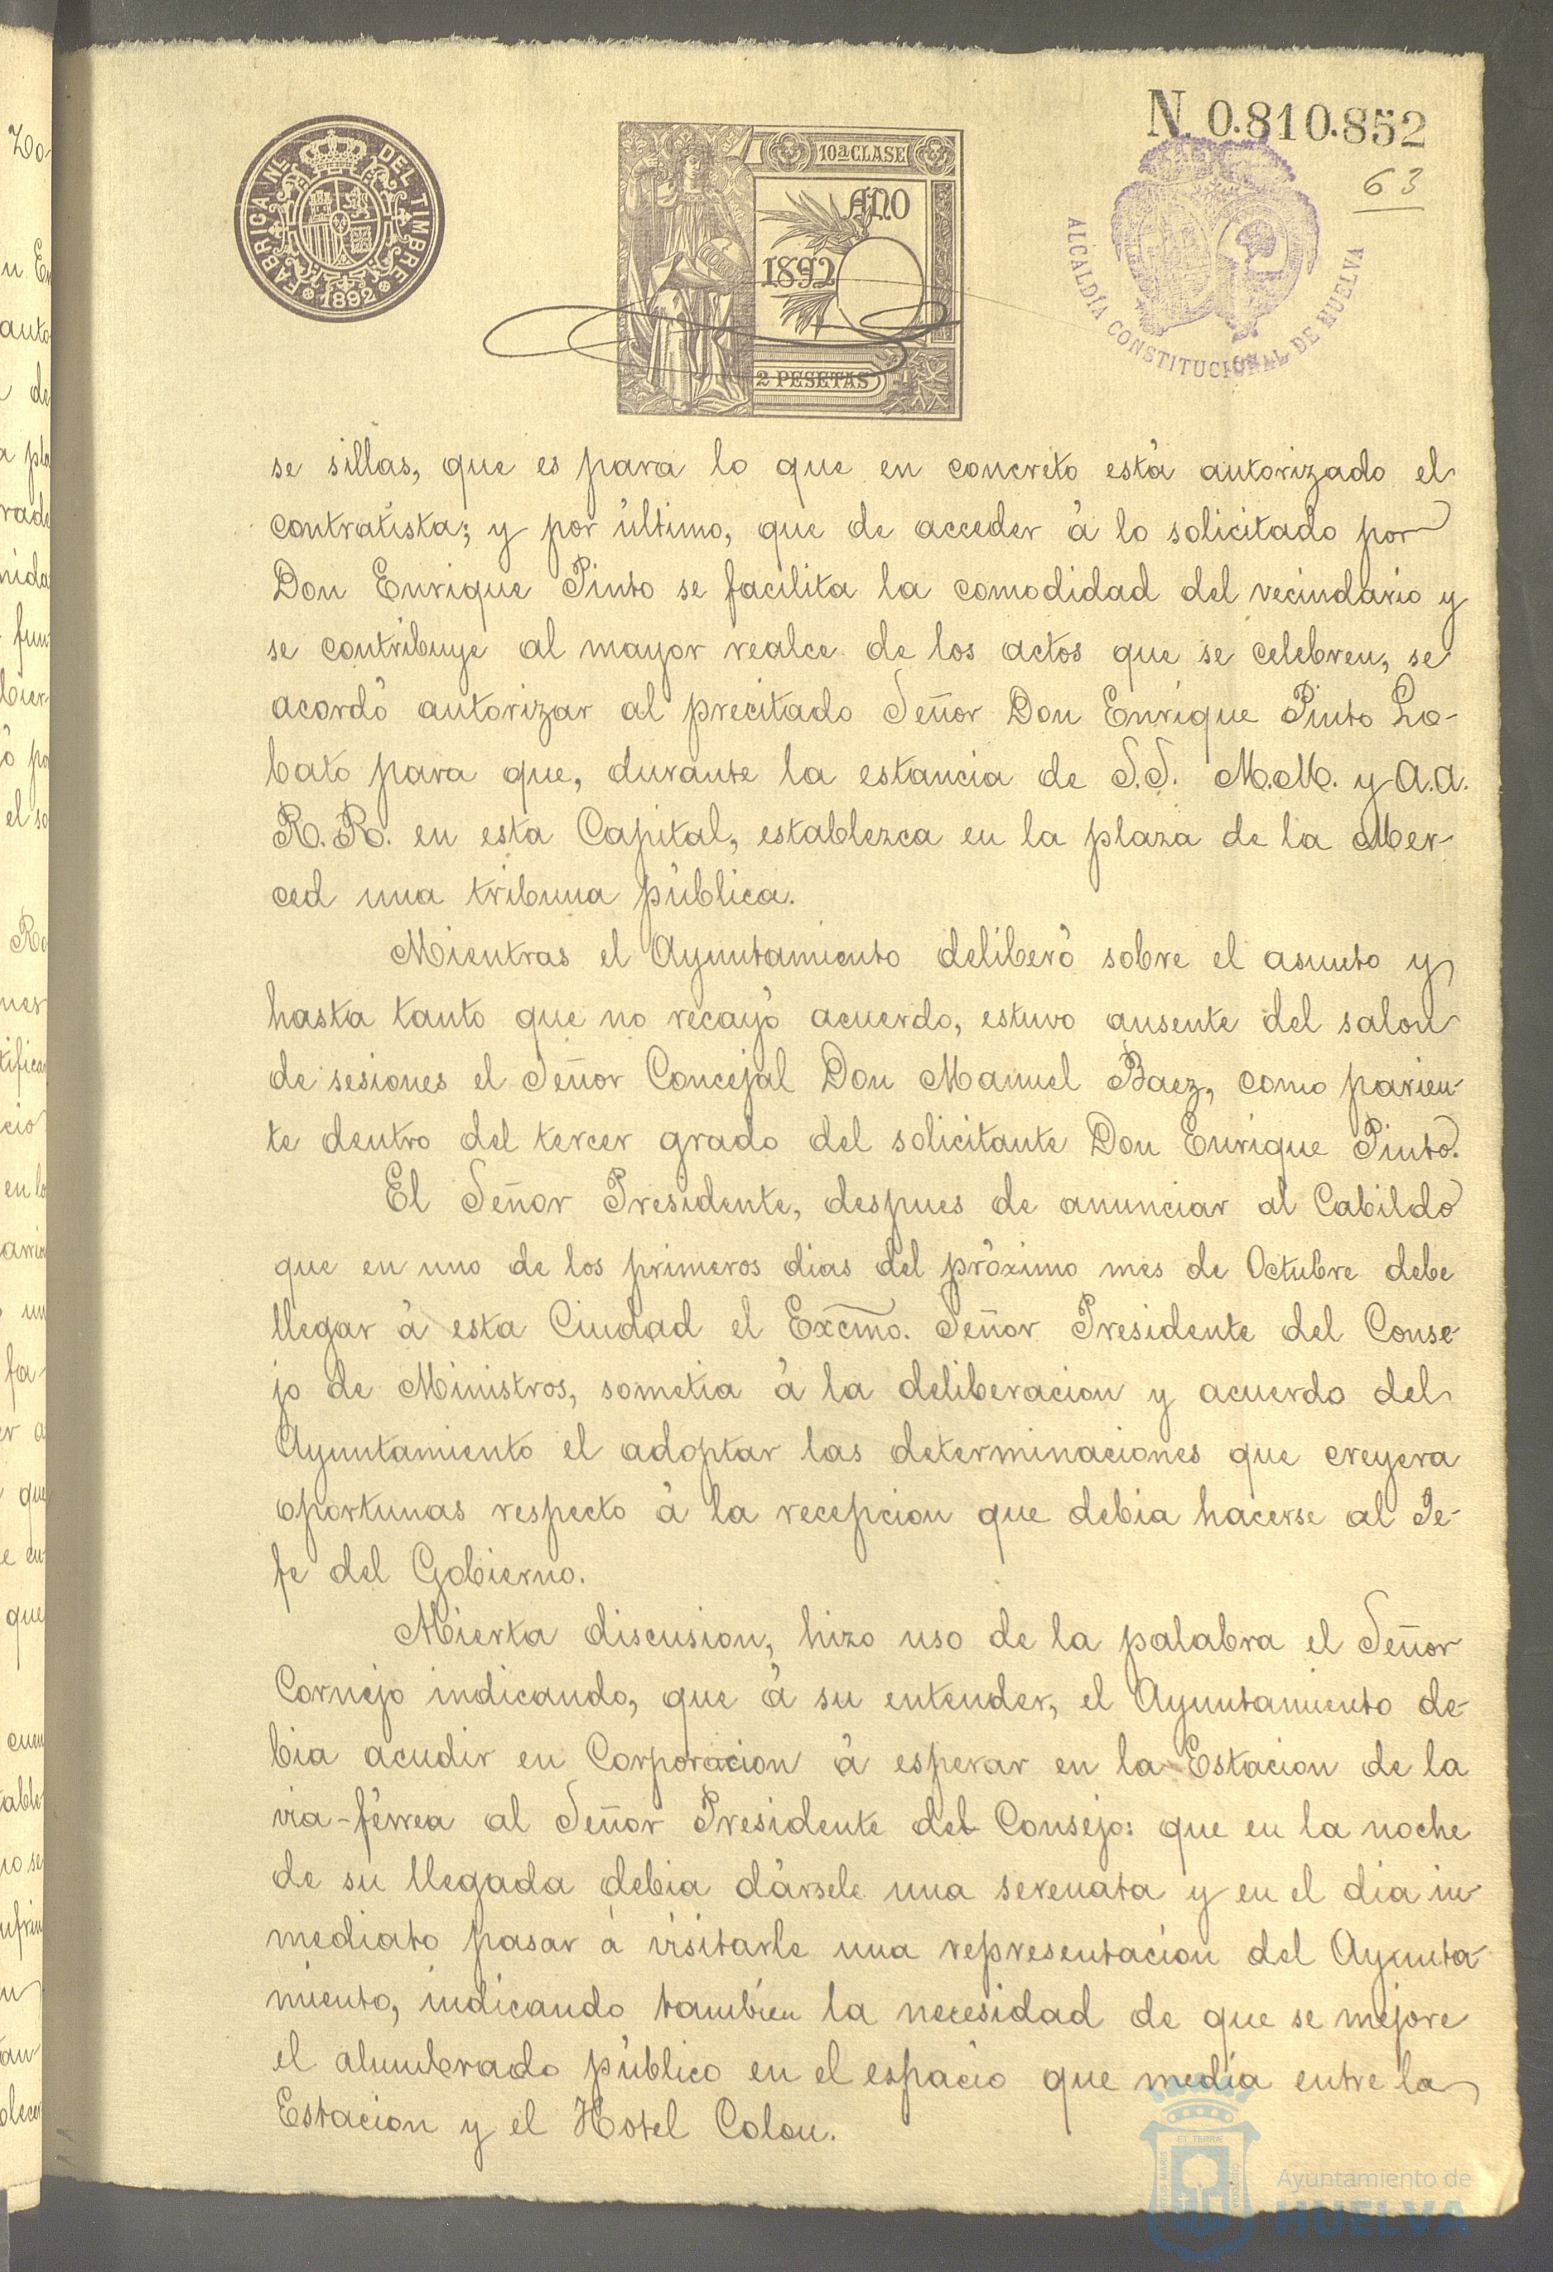 N. 0.810.852
63
FABRICA NL. DEL TIMBRE
1892
10ª CLASE
AÑO
1892
2 PESETAS
ALCALDÍA CONSTITUCIONAL DE HUELVA
se sillas, que es para lo que en concreto está autorizado el
contratista; y por último, que de acceder á lo solicitado por
Don Enrique Pinto se facilita la comodidad del vecindario y
se contribuye al mayor realce de los actos que se celebren, se
acordó autorizar al precitado Señor Don Enrique Pinto Lo-
bato para que, durante la estancia de S.S. M.M. y A.A.
R.R. en esta Capital, establezca en la plaza de la Mer-
ced una tribuna pública.
Mientras el Ayuntamiento deliberó sobre el asunto y
hasta tanto que no recayó acuerdo, estuvo ausente del salon
de sesiones el Señor Concejal Don Manuel Baez, como parien-
te dentro del tercer grado del solicitante Don Enrique Pinto.
El Señor Presidente, despues de anunciar al Cabildo
que en uno de los primeros dias del próximo mes de Octubre debe
llegar á esta Ciudad el Excmo. Señor Presidente del Conse-
jo de Ministros, sometia á la deliberacion y acuerdo del
Ayuntamiento el adoptar las determinaciones que creyera
oportunas respecto á la recepcion que debia hacerse al Je-
fe del Gobierno.
Abierta discusion, hizo uso de la palabra el Señor
Cornejo indicando, que á su entender, el Ayuntamiento de-
bia acudir en Corporacion á esperar en la Estacion de la
via-férrea al Señor Presidente del Consejo: que en la noche
de su llegada debia dársele una serenata y en el dia in-
mediato pasar á visitarle una representacion del Ayunta-
miento, indicando tambien la necesidad de que se mejore
el alumbrado público en el espacio que media entre la
Estacion y el Hotel Colon.
Ayuntamiento de
HUELVA